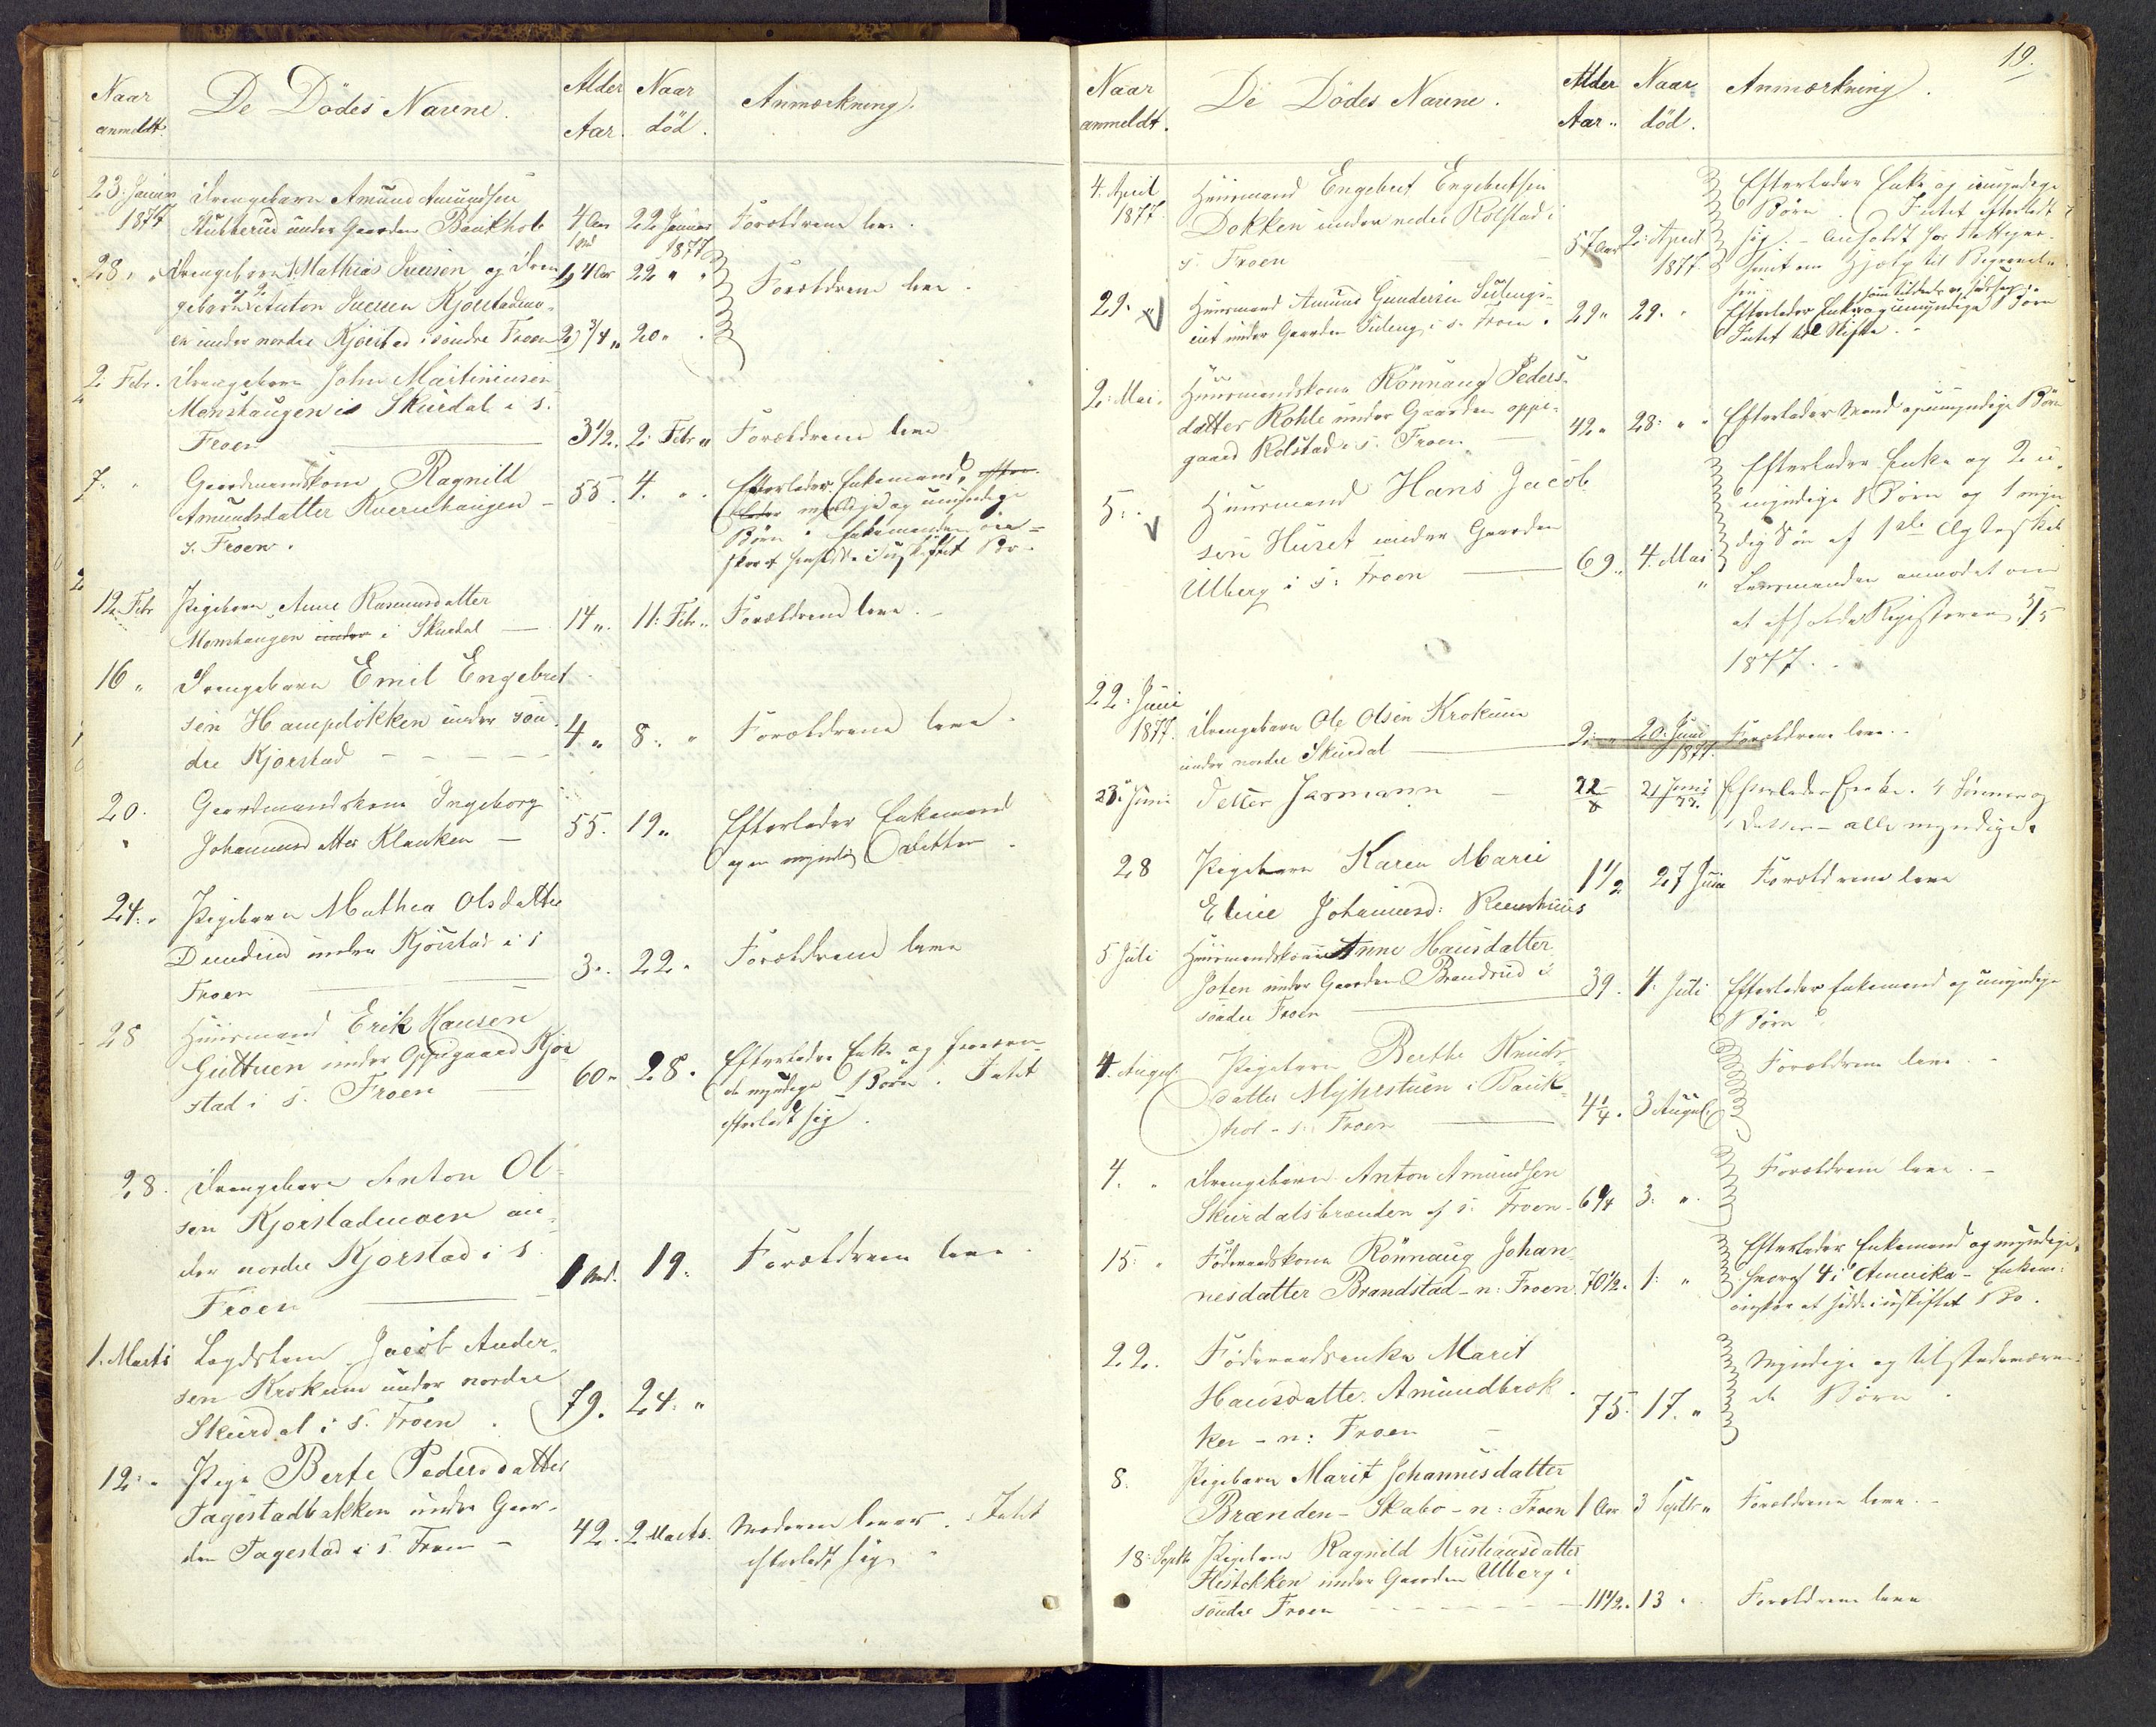 Naar
anmeldt.
De Dödes Navne.
Alder
Aar.
Naar
död.
Anmærkning.
23. Januar
1877
Drengebarn Amund Amundsen
Stubberud under Gaarden Baukhol
4 Aar
1 Md
22 Januar
1877
Forældrene leve.
28. "
Drengebarn 1, Mathias Iversen og Dren
1, 4 Aar
22 "
Forældrene leve.
gebarn 2, Anton Iversen Kjorstadmo-
en under nordre Kjorstad i söndre Froen
2, 3/4 "
20 "
2 Febr.
Drengebarn John Martiniusen
Monshaugen i Skurdal i s.
Froen
3 1/2.
2. Febr "
Forældrene leve
7. "
Gaardmandskone Ragnild
Amundsdatter Kvernhaugen
s. Froen.
55.
4. "
Efterlader Enkemand, efter-
lader myndige og umyndige
Börn. Enkemanden ön-
sker at hensidde i uskiftet Bo.
12 Febr
Pigebarn Anne Rasmusdatter
Monshaugen under i Skurdal
14 ".
11. Febr "
Forældrene leve.
16 "
Drengebarn Emil Engebret
sen Hampelökken under sön-
dre Kjorstad
4 "
8. "
Forældrene leve.
20.
"
Gaardmandskone Ingeborg
Johannesdatter Klauken
55.
19 "
Efterlader Enkemand
og en myndig Datter.
24. "
Pigebarn Mathea Olsdatter
under Kjörstad i s
Froen
3 ".
22. "
Forældrene leve
28
Huusmand Erik Hansen
Guttuen under Oppigaard Kjor
stad i s. Froen
60 "
28.
Efterlader Enke og
myndige Börn. Intet
efterladt sig.
28.
Drengebarn Anton Ol-
sen Kjorstadmoen un-
der nordre Kjorstad i s.
Froen
1 Md.
19.
Forældrene leve.
1. Marts
Lægdslem Jacob Ander-
sen Krokum under nordre
Skurdal i s. Froen.
79.
24. "
12. "
Pige Berte Pedersdatter
Tagestadbakken under Gaar-
den Tagestad i s. Froen
42.
2 Marts.
Moderen lever. Intet
efterladt sig.
19.
Naar
anmeldt.
De Dödes Navne.
Alder
Aar.
Naar
död.
Anmærkning.
4. April
1877.
Huusmand Engebret Engebretsen
Dokken under nedre Rolstad i
s. Froen
57 Aar
2. April
1877.
Efterlader Enke og umyndige
Börn. Intet efterladt
sig.
om Hjælp til Begravel-
sen
29. "
Huusmand Amund Gundersen Sulengs-
eiet under Gaarden Suleng i s. Froen.
29 "
29. "
Efterlader Enke og umyndige Börn
Intet til Skifte.
2. Mai.
Huusmandskone Rönnaug Peders-
datter Kohle under Gaarden oppi-
gaard Rolstad i s. Froen
42 "
28. "
Efterlader Mand og umyndige Börn
5. "
Huusmand Hans Jacob
sen Huset under Gaarden
Ulberg i s. Froen
69 "
4. Mai
"
Efterlader Enke og 2 u-
myndige Börn og 1 myn
dig Sön af 1ste Ægteskab
Lensmanden anmodet om
at afholde Registrering 5/5
1877.
22. Juni
1877.
Drengebarn Ole Olsen Krokum
under nordre Skurdal
2. "
20. Juni
1877.
Forældrene leve.
23. Juni
Petter Jarmann
21 Juni
77.
Efterlader Enke. 4 Sönner og
1 Datter - alle myndige.
28
Pigebarn Karen Marie
Eline Johannesd:
1 1/2
27 Juni
Forældrene leve
5 Juli
Huusmandskone Anne Hansdatter
Joten under Gaarden Brandrud i
söndre Froen
39.
4. Juli
Efterlader Enkemand og umyndige
Börn.
4. August
Pigebarn Berthe Knuds-
datter Myhrstuen i Bauk-
hol - s. Froen
4 1/4.
3 August
Forældrene leve.
4. "
Drengebarn Anton Amundsen
Skurdalsbrænden af s. Froen
6 3/4
3. "
Forældrene leve.
15. "
Föderaadskone Rönnaug Johan-
nesdatter Brandstad - n: Froen.
70 1/2.
1. "
Efterlader Enkemand og myndige,
hvoraf 4 i Amerika - Enkem:
önsker at sidde i uskiftet Bo.
22.
Föderaadsenke Marit
Hansdatter Amundbrek
ker - n: Froen
75.
17. "
Myndige og tilstedeværen-
de Börn.
8.
Pigebarn Marit Johannesdatter
Brænden - Skabo - n: Froen
1 Aar
3 Septb "
Forældrene leve.
18. Septb
Pigebarn Ragnild Kristiansdatter
under Gaarden Ulberg i
söndre Froen
11 1/2.
13 "
Forældrene leve